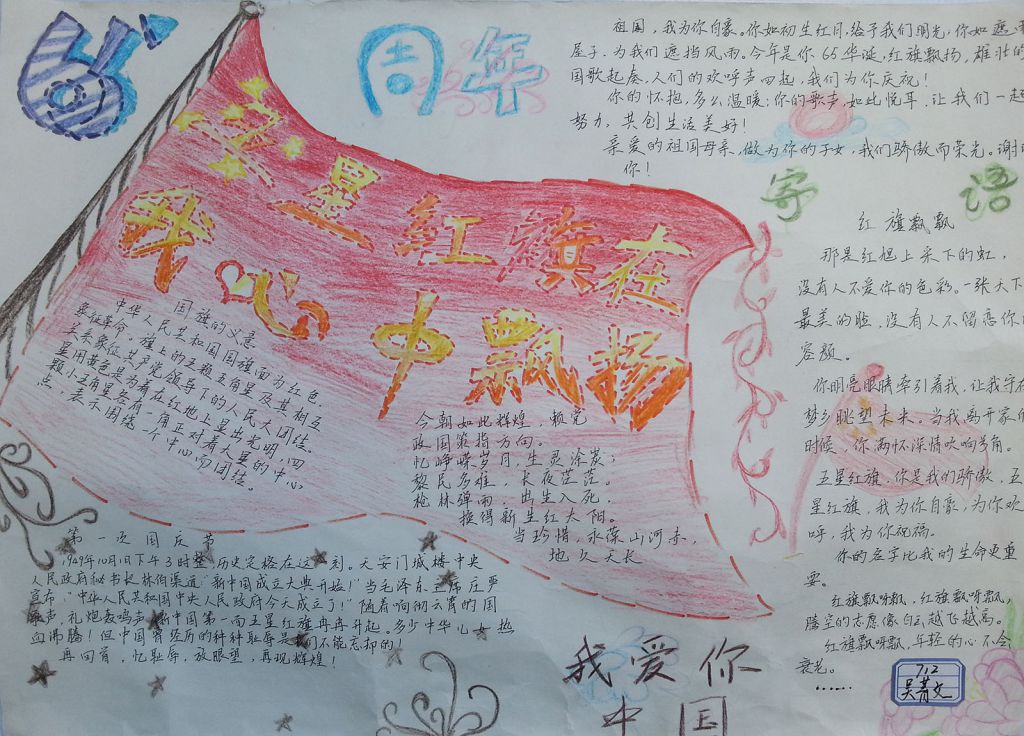 65
周年
祖国，我为你自豪。你如初生红日，给予我们明光，你如遮
屋子，为我们遮挡风雨。今年是你65华诞，红旗飘扬，雄壮的
国歌起奏，人们的欢呼声四起，我们为你庆祝！
你的怀抱，多么温暖；你的歌声，如此悦耳，让我们一起
努力，共创生活美好！
亲爱的祖国母亲，做为你的子女，我们骄傲而荣光。谢
你！
寄语
五星红旗在
我心中飘扬
国旗的义意
中华人民共和国国旗面为红色，
象征革命，旗上的五颗五角星及其相互
关系象征共产党领导下的人民大团结。
星用黄色是为着在红地上显出光明，四
颗小五角星各有一角正对着大星的中心
点，表示围绕一个中心而团结。
今朝如此辉煌，赖党
政国策指方向。
忆峥嵘岁月，生灵涂炭；
黎民多难，长夜茫茫。
枪林弹雨，出生入死，
换得新生红太阳。
当珍惜，永葆山河赤，
地久天长
红旗飘飘
那是红旭上采下的虹，
没有人不爱你的色彩。一张天下
最美的脸，没有人不留恋你
容颜。
你明亮眼睛牵引着我，让我守在
梦乡眺望未来。当我离开家的
时候，你满怀深情吹响号角。
五星红旗，你是我们骄傲，五
星红旗，我为你自豪，为你欢
呼，我为你祝福。
你的名字比我的生命更重
要。
红旗飘呀飘，红旗飘呀飘，
腾空的志愿像白云越飞越高。
红旗飘呀飘，年轻的心不会
衰老。
……
第一次国庆节
1949年10月1日下午3时整，历史定格在这一刻。天安门城楼中央
人民政府秘书长林伯渠道“新中国成立大典开始！”当毛泽东主席庄严
宣布：“中华人民共和国中央人民政府今天成立了！”随着响彻云霄的国
歌声，礼炮轰鸣声，新中国第一面五星红旗冉冉升起。多少中华儿女热
血沸腾！但中国曾经历的种种耻辱是我们不能忘却的
再回首，忆耻辱，放眼望，再现辉煌！
我爱你
中国
712
吴菁文